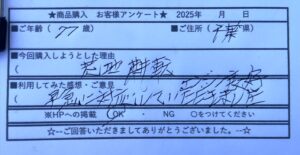 ★商品購入 お客様アンケート★ 2025年 月 日
■ご年齢 ( 77 歳) ■ご住所 ( 千葉 県)
■今回購入しようとした理由
( 荒地 耕耘
■利用してみた感想・ご意見
早急に対応していただき
※HPへの掲載 OK ・ NG ○をつけてください
☆--ご回答いただきましてありがとうございました。--☆